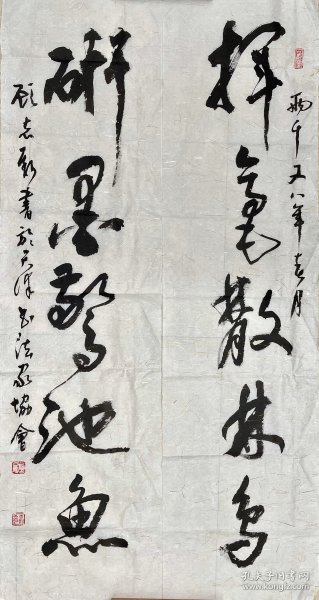 兩千又八年月
揮毫散林鳥
研墨驚池魚
顧志新書於天津書法家協會
孔夫子旧书网